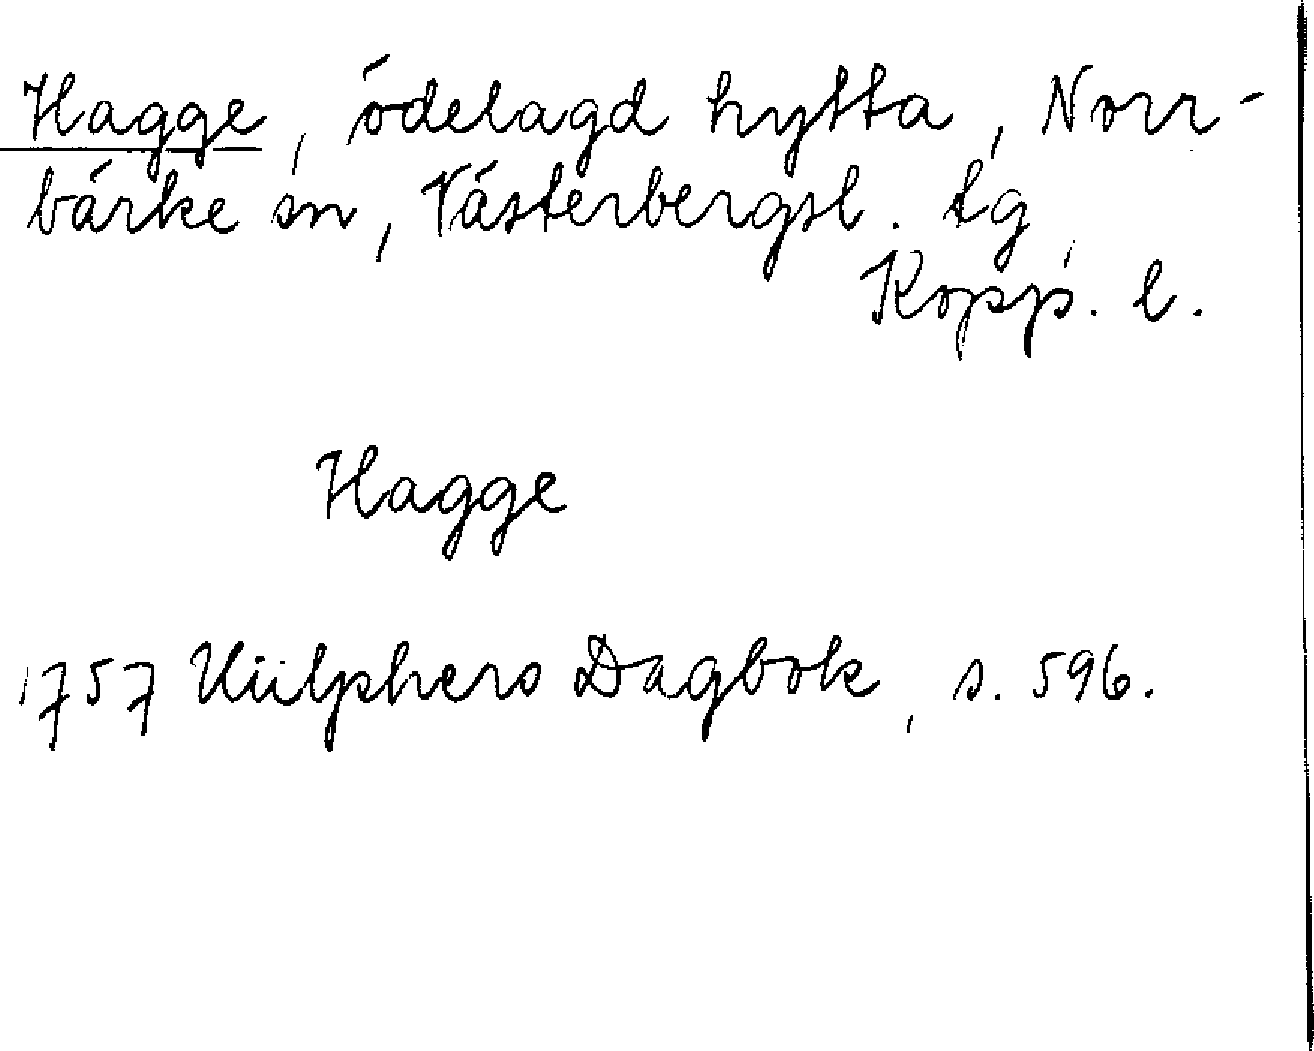 Hagge, ödelagd hytta, Norr-
bärke sn, Västerbergsl. tg,
Kopp. l.
Hagge
1757 Hülphers Dagbok, s. 596.